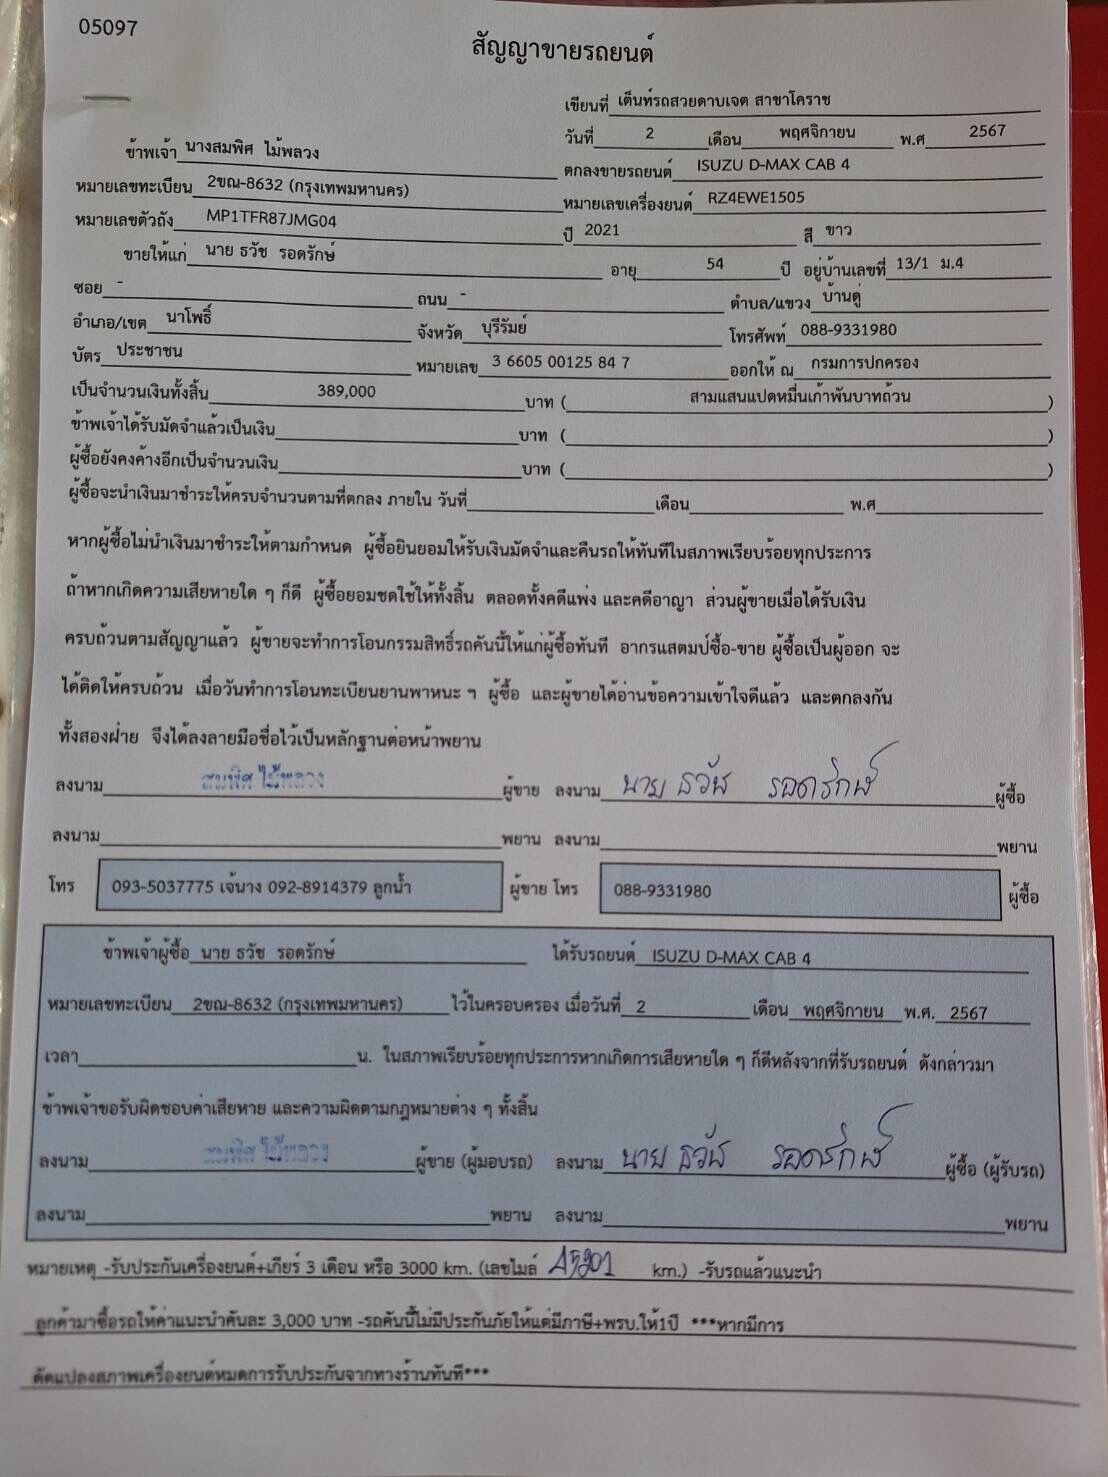 05097
สัญญาขายรถยนต์
เขียนที่ เต็นท์รถสวยดาบเจต สาขาโคราช
วันที่ 2 เดือน พฤศจิกายน พ.ศ 2567
ข้าพเจ้า นางสมพิศ ไม้พลวง ตกลงขายรถยนต์ ISUZU D-MAX CAB 4
หมายเลขทะเบียน 2ขณ-8632 (กรุงเทพมหานคร) หมายเลขเครื่องยนต์ RZ4EWE1505
หมายเลขตัวถัง MP1TFR87JMG04 ปี 2021 สี ขาว
ขายให้แก่ นาย ธวัช รอดรักษ์ อายุ 54 ปี อยู่บ้านเลขที่ 13/1 ม.4
ซอย - ถนน - ตำบล/แขวง บ้านดู่
อำเภอ/เขต นาโพธิ์ จังหวัด บุรีรัมย์ โทรศัพท์ 088-9331980
บัตร ประชาชน หมายเลข 3 6605 00125 84 7 ออกให้ ณ กรมการปกครอง
เป็นจำนวนเงินทั้งสิ้น 389,000 บาท ( สามแสนแปดหมื่นเก้าพันบาทถ้วน )
ข้าพเจ้าได้รับมัดจำแล้วเป็นเงิน บาท ( )
ผู้ซื้อยังคงค้างอีกเป็นจำนวนเงิน บาท ( )
ผู้ซื้อจะนำเงินมาชำระให้ครบจำนวนตามที่ตกลง ภายใน วันที่ เดือน พ.ศ
หากผู้ซื้อไม่นำเงินมาชำระให้ตามกำหนด ผู้ซื้อยินยอมให้รับเงินมัดจำและคืนรถให้ทันทีในสภาพเรียบร้อยทุกประการ
ถ้าหากเกิดความเสียหายใด ๆ ก็ดี ผู้ซื้อยอมชดใช้ให้ทั้งสิ้น ตลอดทั้งคดีแพ่ง และคดีอาญา ส่วนผู้ขายเมื่อได้รับเงิน
ครบถ้วนตามสัญญาแล้ว ผู้ขายจะทำการโอนกรรมสิทธิ์รถคันนี้ให้แก่ผู้ซื้อทันที อากรแสตมป์ซื้อ-ขาย ผู้ซื้อเป็นผู้ออก จะ
ได้ติดให้ครบถ้วน เมื่อวันทำการโอนทะเบียนยานพาหนะ ฯ ผู้ซื้อ และผู้ขายได้อ่านข้อความเข้าใจดีแล้ว และตกลงกัน
ทั้งสองฝ่าย จึงได้ลงลายมือชื่อไว้เป็นหลักฐานต่อหน้าพยาน
ลงนาม สมพิศ ไม้พลวง ผู้ขาย ลงนาม นาย ธวัช รอดรักษ์ ผู้ซื้อ
ลงนาม พยาน ลงนาม พยาน
โทร 093-5037775 เจ้นาง 092-8914379 ลูกน้ำ ผู้ขาย โทร 088-9331980 ผู้ซื้อ
ข้าพเจ้าผู้ซื้อ นาย ธวัช รอดรักษ์ ได้รับรถยนต์ ISUZU D-MAX CAB 4
หมายเลขทะเบียน 2ขณ-8632 (กรุงเทพมหานคร) ไว้ในครอบครอง เมื่อวันที่ 2 เดือน พฤศจิกายน พ.ศ. 2567
เวลา น. ในสภาพเรียบร้อยทุกประการหากเกิดการเสียหายใด ๆ ก็ดีหลังจากที่รับรถยนต์ ดังกล่าวมา
ข้าพเจ้าขอรับผิดชอบค่าเสียหาย และความผิดตามกฎหมายต่าง ๆ ทั้งสิ้น
ลงนาม สมพิศ ไม้พลวง ผู้ขาย (ผู้มอบรถ) ลงนาม นาย ธวัช รอดรักษ์ ผู้ซื้อ (ผู้รับรถ)
ลงนาม พยาน ลงนาม พยาน
หมายเหตุ -รับประกันเครื่องยนต์+เกียร์ 3 เดือน หรือ 3000 km. (เลขไมล์ km.) -รับรถแล้วแนะนำ
ลูกค้ามาซื้อรถให้ค่าแนะนำคันละ 3,000 บาท -รถคันนี้ไม่มีประกันภัยให้แต่มีภาษี+พรบ.ให้1ปี ***หากมีการ
ดัดแปลงสภาพเครื่องยนต์หมดการรับประกันจากทางร้านทันที***